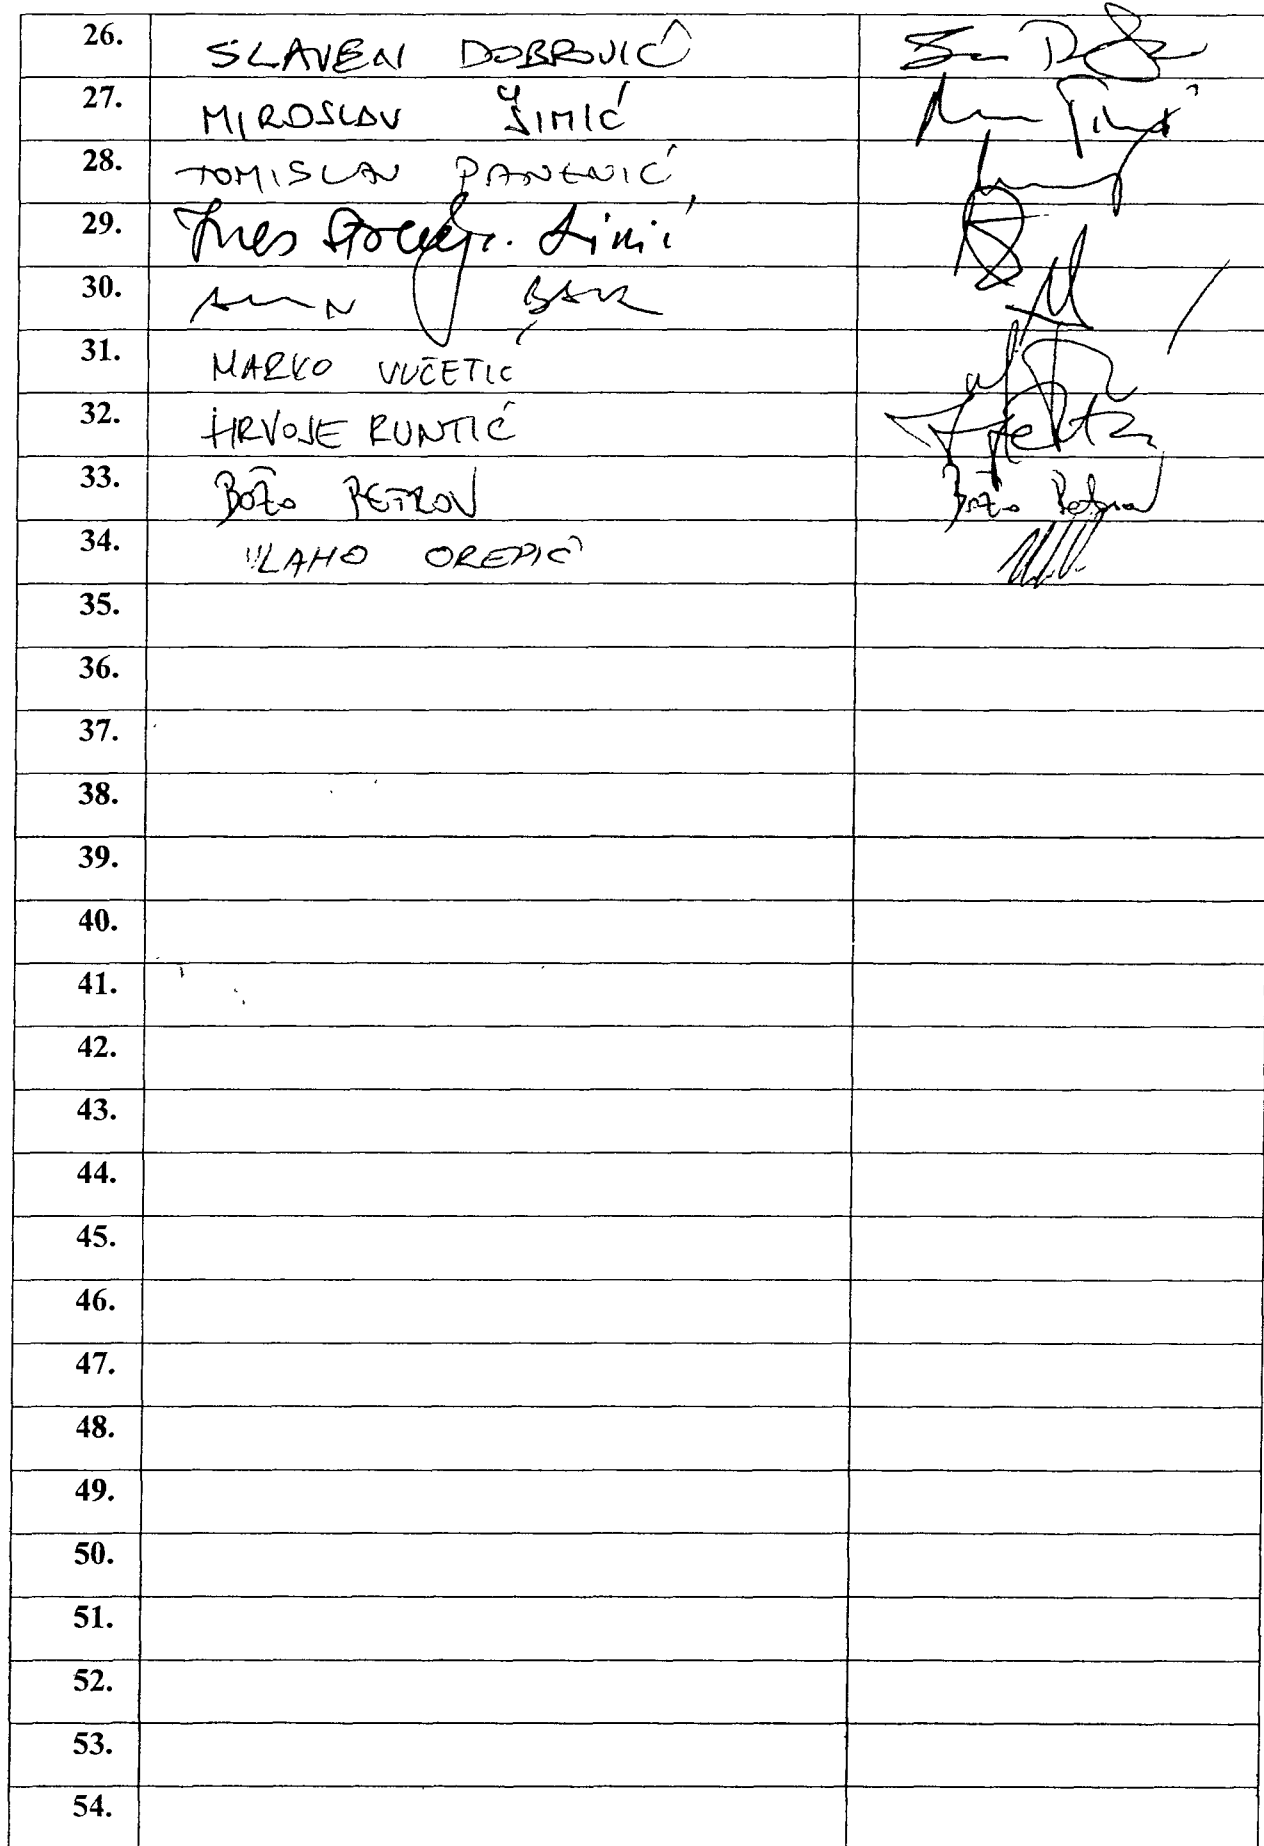 26. SLAVEN DOBROVIĆ
27. MIROSLAV ŠIMIĆ
28. TOMISLAV PANENIĆ
29. Ines
30.
31. MARKO VUČETIĆ
32. HRVOJE RUNTIĆ
33. BOŽO PETROV Božo Petrov
34. VLAHO OREPIĆ
35.
36.
37.
38.
39.
40.
41.
42.
43.
44.
45.
46.
47.
48.
49.
50.
51.
52.
53.
54.